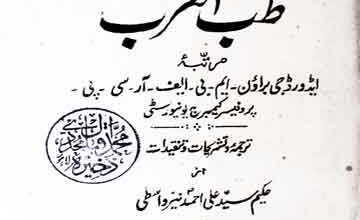 طب العرب
مرتبۂ
ایڈورڈ جی براؤن - ایم - بی - ایف - آر - سی - پی -
پروفیسر کیمبرج یونیورسٹی
ترجمہ و تشریحات و تنقیدات
از
حکیم سید علی احمد نیر واسطی
محمد اقبال مجددی
ذخیرہ